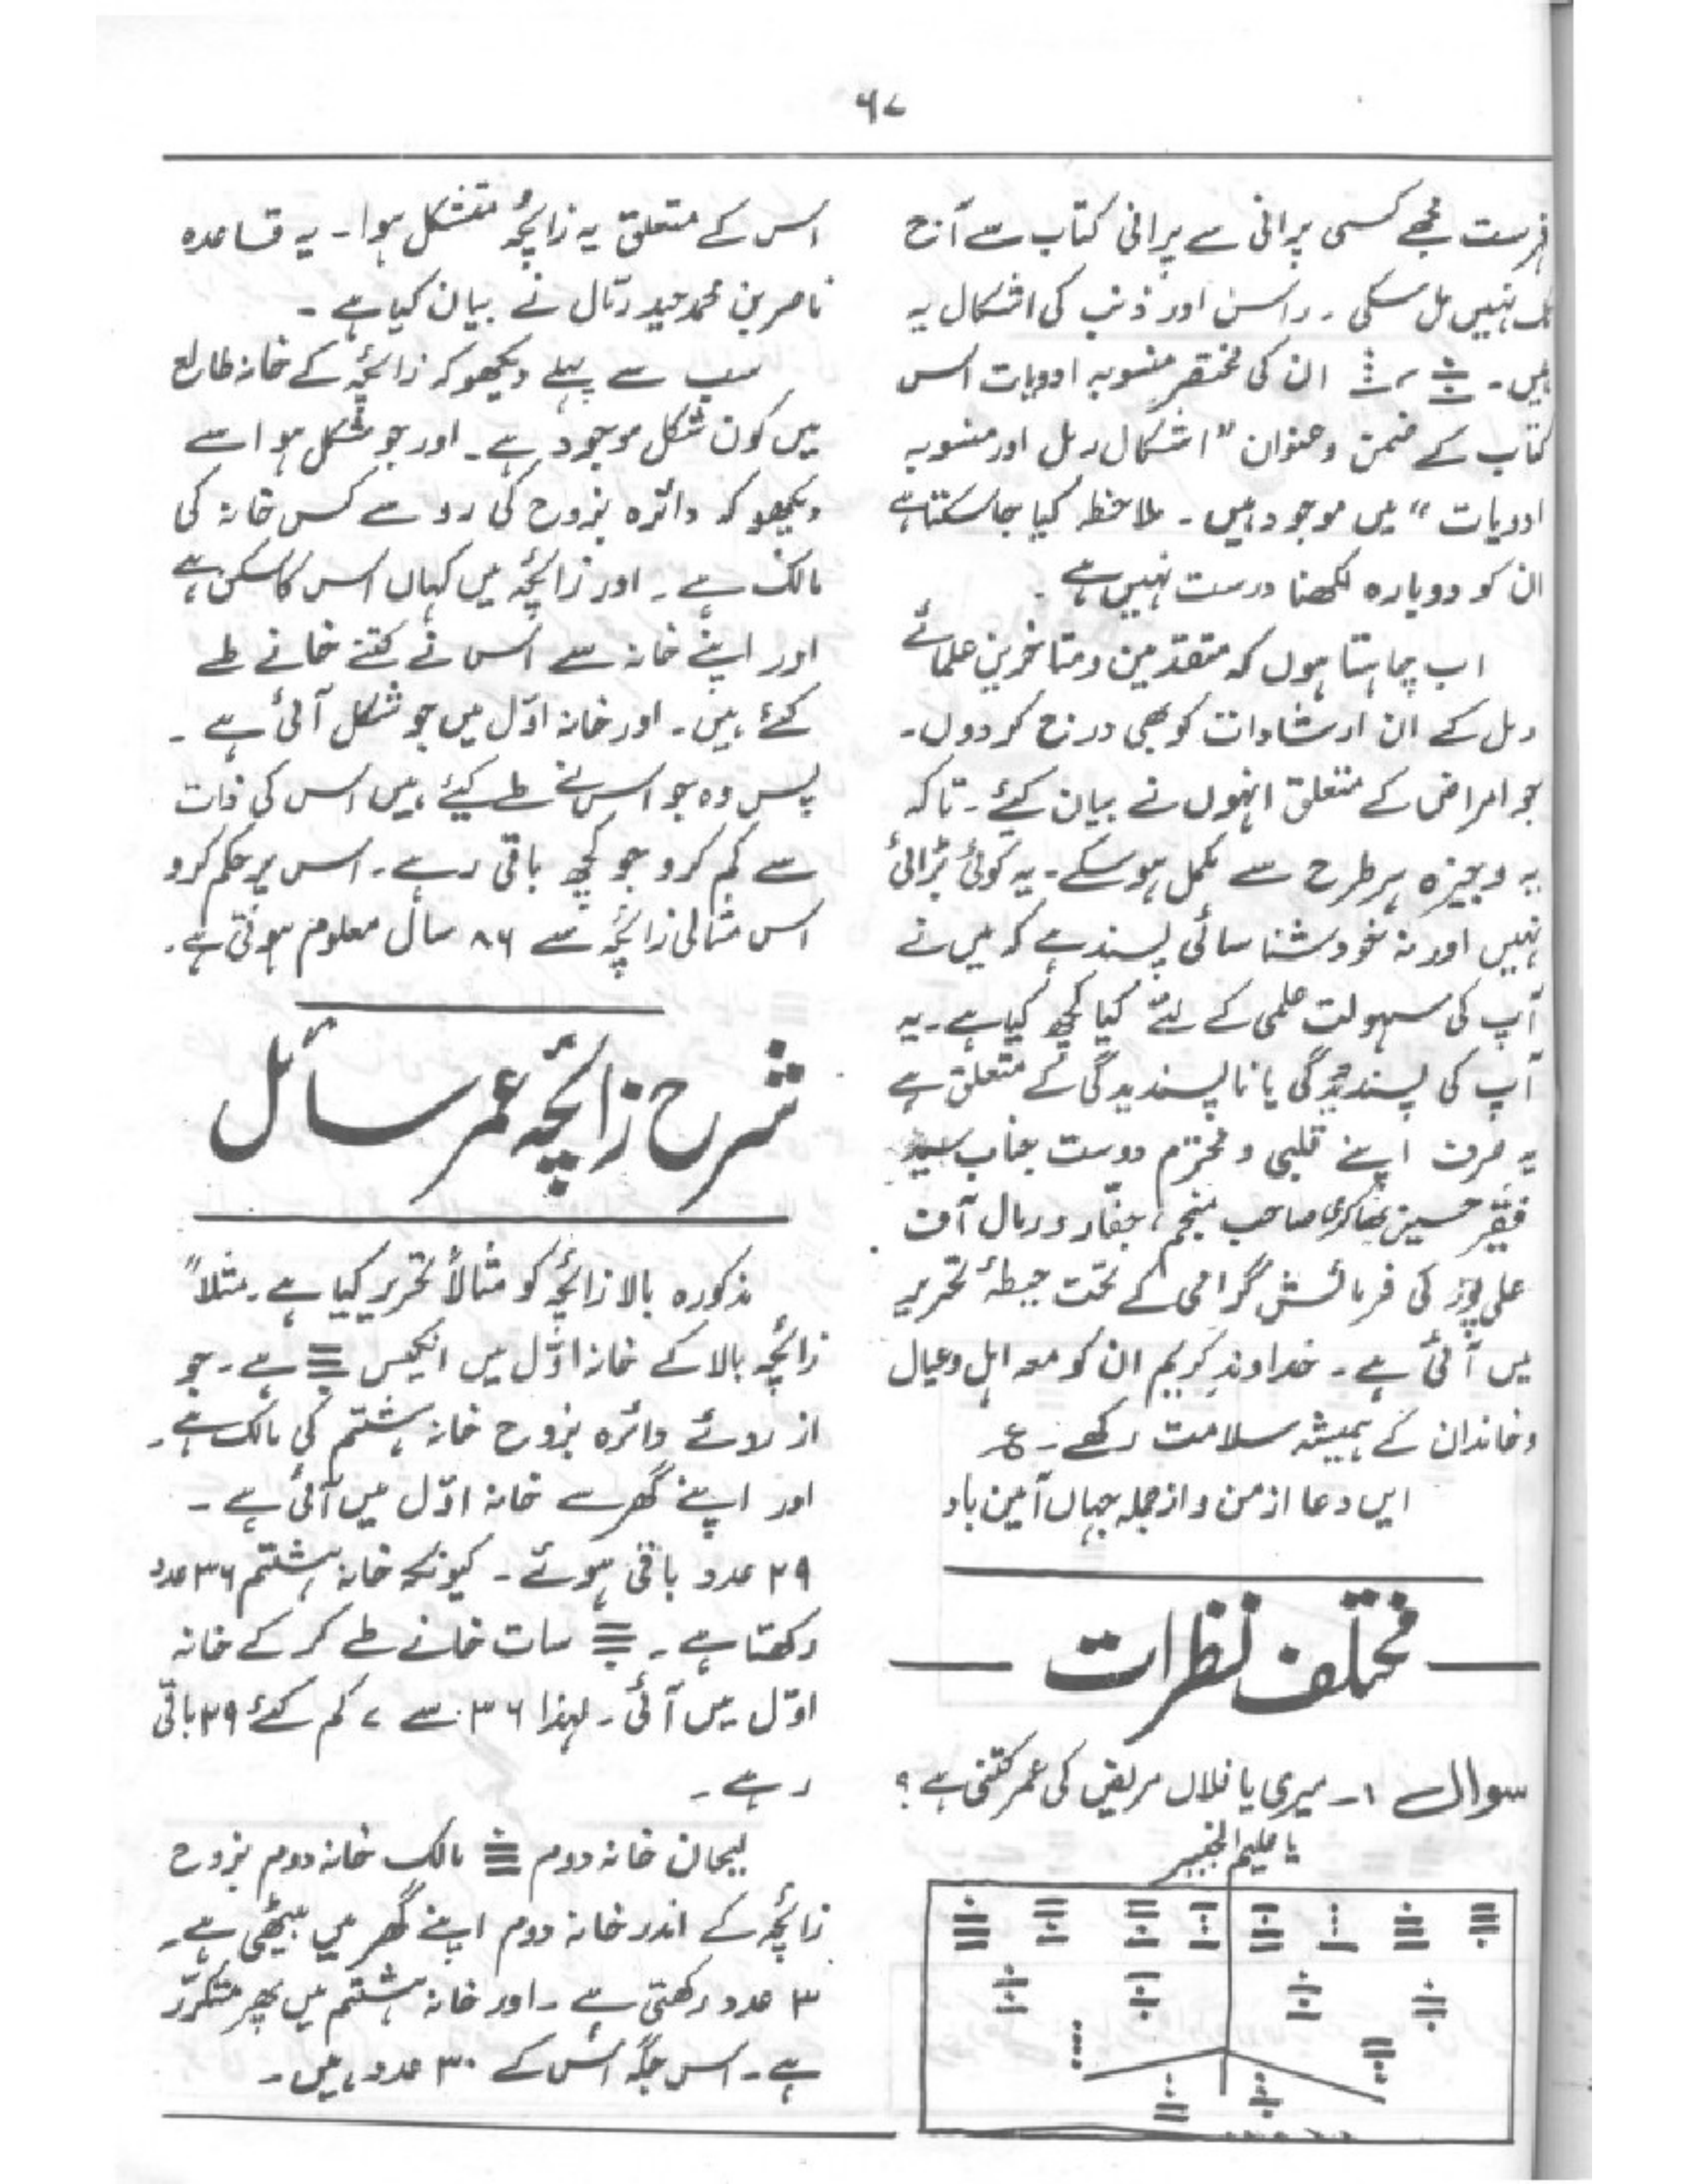 ۶۷
فہرست مجھے کسی پرانی سے پرانی کتاب سے آج
تک نہیں مل سکی۔ راس اور ذنب کی اشکال یہ
ہیں۔ ، ان کی مختصر منسوبہ ادویات اس
کتاب کے ضمن و عنوان "اشکال رمل اور منسوبہ
ادویات" میں موجود ہیں۔ ملاحظہ کیا جا سکتا ہے
ان کو دوبارہ لکھنا درست نہیں ہے۔
اب چاہتا ہوں کہ متقدمین و متاخرین علمائے
رمل کے ان ارشادات کو بھی درج کر دوں۔
جو امراض کے متعلق انہوں نے بیان کئے۔ تاکہ
یہ وجیزہ ہر طرح سے مکمل ہو سکے۔ یہ کوئی بڑائی
نہیں اور نہ خود شناسائی پسند ہے کہ میں نے
آپ کی سہولت علمی کے لئے کیا کچھ کیا ہے۔ یہ
آپ کی پسندیدگی یا ناپسندیدگی کے متعلق ہے
یہ صرف اپنے قلبی و محترم دوست جناب سید
فقیر حسین صاحب منجم، جفار و رمال آف
علی پور کی فرمائش گرامی کے تحت حیطۂ تحریر
میں آئی ہے۔ خداوند کریم ان کو معہ اہل و عیال
و خاندان کے ہمیشہ سلامت رکھے۔ ع
ایں دعا از من و از جملہ جہاں آمین باد
مختلف نظرات
سوال ۱۔ میری یا فلاں مریض کی عمر کتنی ہے؟
یا علیم الخبیر
اس کے متعلق یہ زائچہ متشکل ہوا۔ یہ قاعدہ
ناصر بن محمد حیدر رمال نے بیان کیا ہے۔
سب سے پہلے دیکھو کہ زائچہ کے خانہ طالع
میں کون شکل موجود ہے۔ اور جو شکل ہو اسے
دیکھو کہ دائرہ بزوح کی رو سے کس خانہ کی
مالک ہے۔ اور زائچہ میں کہاں اس کا سکن ہے
اور اپنے خانہ سے اس نے کتنے خانے طے
کئے ہیں۔ اور خانہ اوّل میں جو شکل آئی ہے۔
پس وہ جو اس نے طے کیئے ہیں اس کی ذات
سے کم کرو جو کچھ باقی رہے۔ اس پر حکم کرو
اس مثالی زائچہ سے ۸۶ سال معلوم ہوتی ہے۔
شرح زائچہ عمر سائل
مذکورہ بالا زائچہ کو مثالاً تحریر کیا ہے۔ مثلاً
زائچہ بالا کے خانہ اوّل میں انکیس ہے۔ جو
از روئے دائرہ بزوح خانہ ہشتم کی مالک ہے۔
اور اپنے گھر سے خانہ اوّل میں آئی ہے۔
۲۹ عدد باقی ہوئے۔ کیونکہ خانہ ہشتم ۳۶ عدد
رکھتا ہے۔ سات خانے طے کر کے خانہ
اوّل میں آئی۔ لہذا ۳۶ سے ۷ کم کئے ۲۹ باقی
رہے۔
لیحان خانہ دوم مالک خانہ دوم بزوح
زائچہ کے اندر خانہ دوم اپنے گھر میں بیٹھی ہے۔
۳ عدد رکھتی ہے۔ اور خانہ ہشتم میں پھر متکرر
ہے۔ اس جگہ اس کے ۳۰ عدد ہیں۔